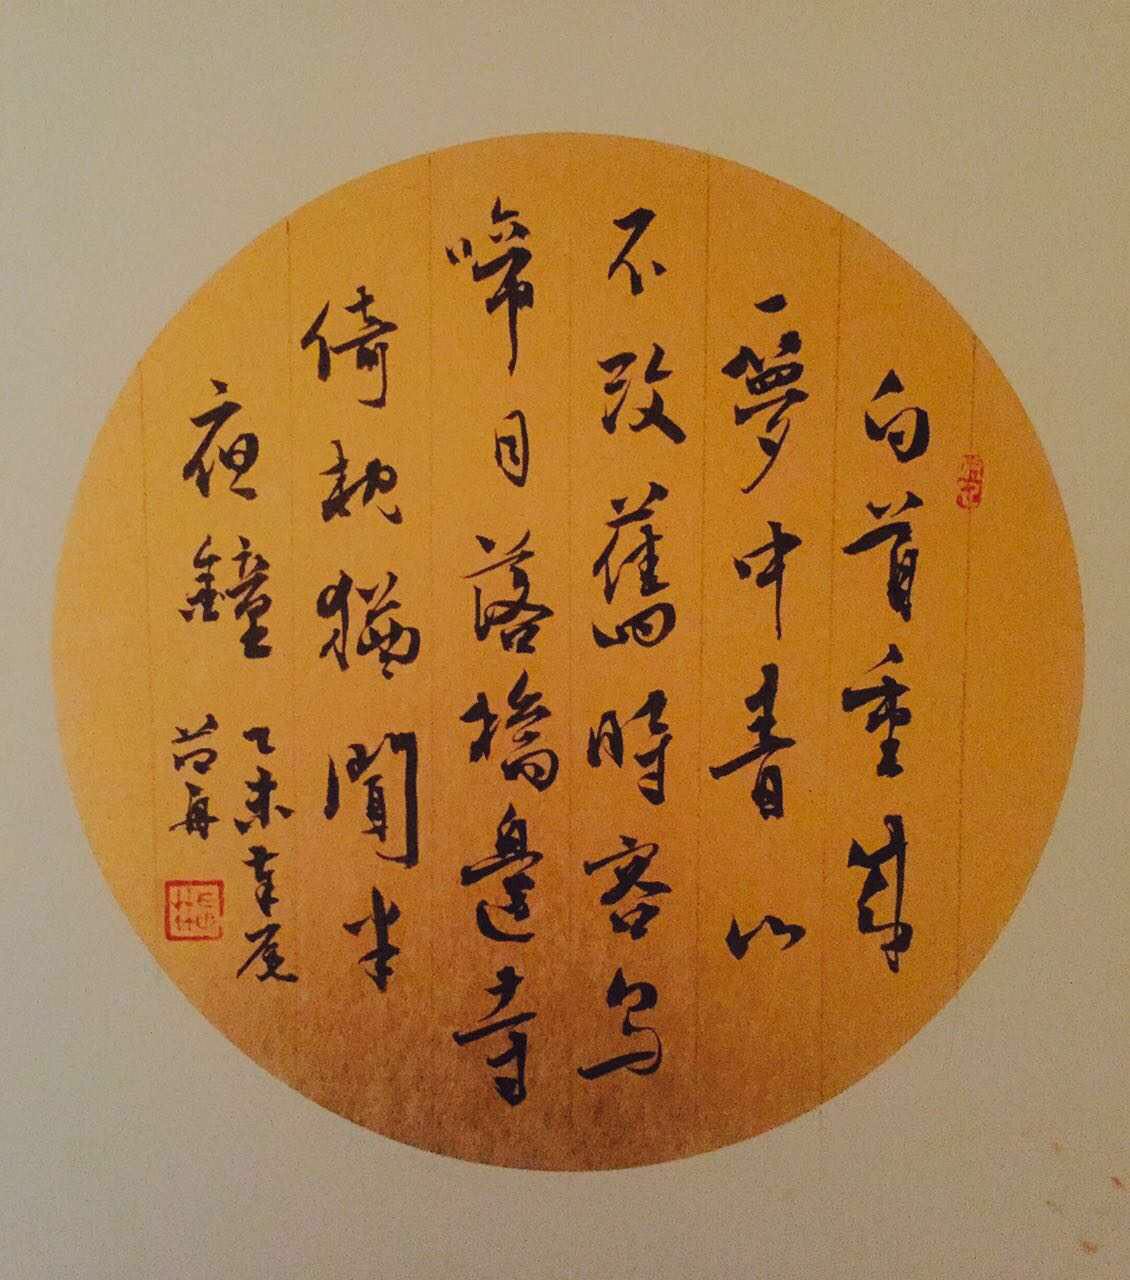 白首重來
一夢中青山
不改舊時容烏
啼月落橋邊寺
倚枕猶聞半
夜鐘
乙未年尾